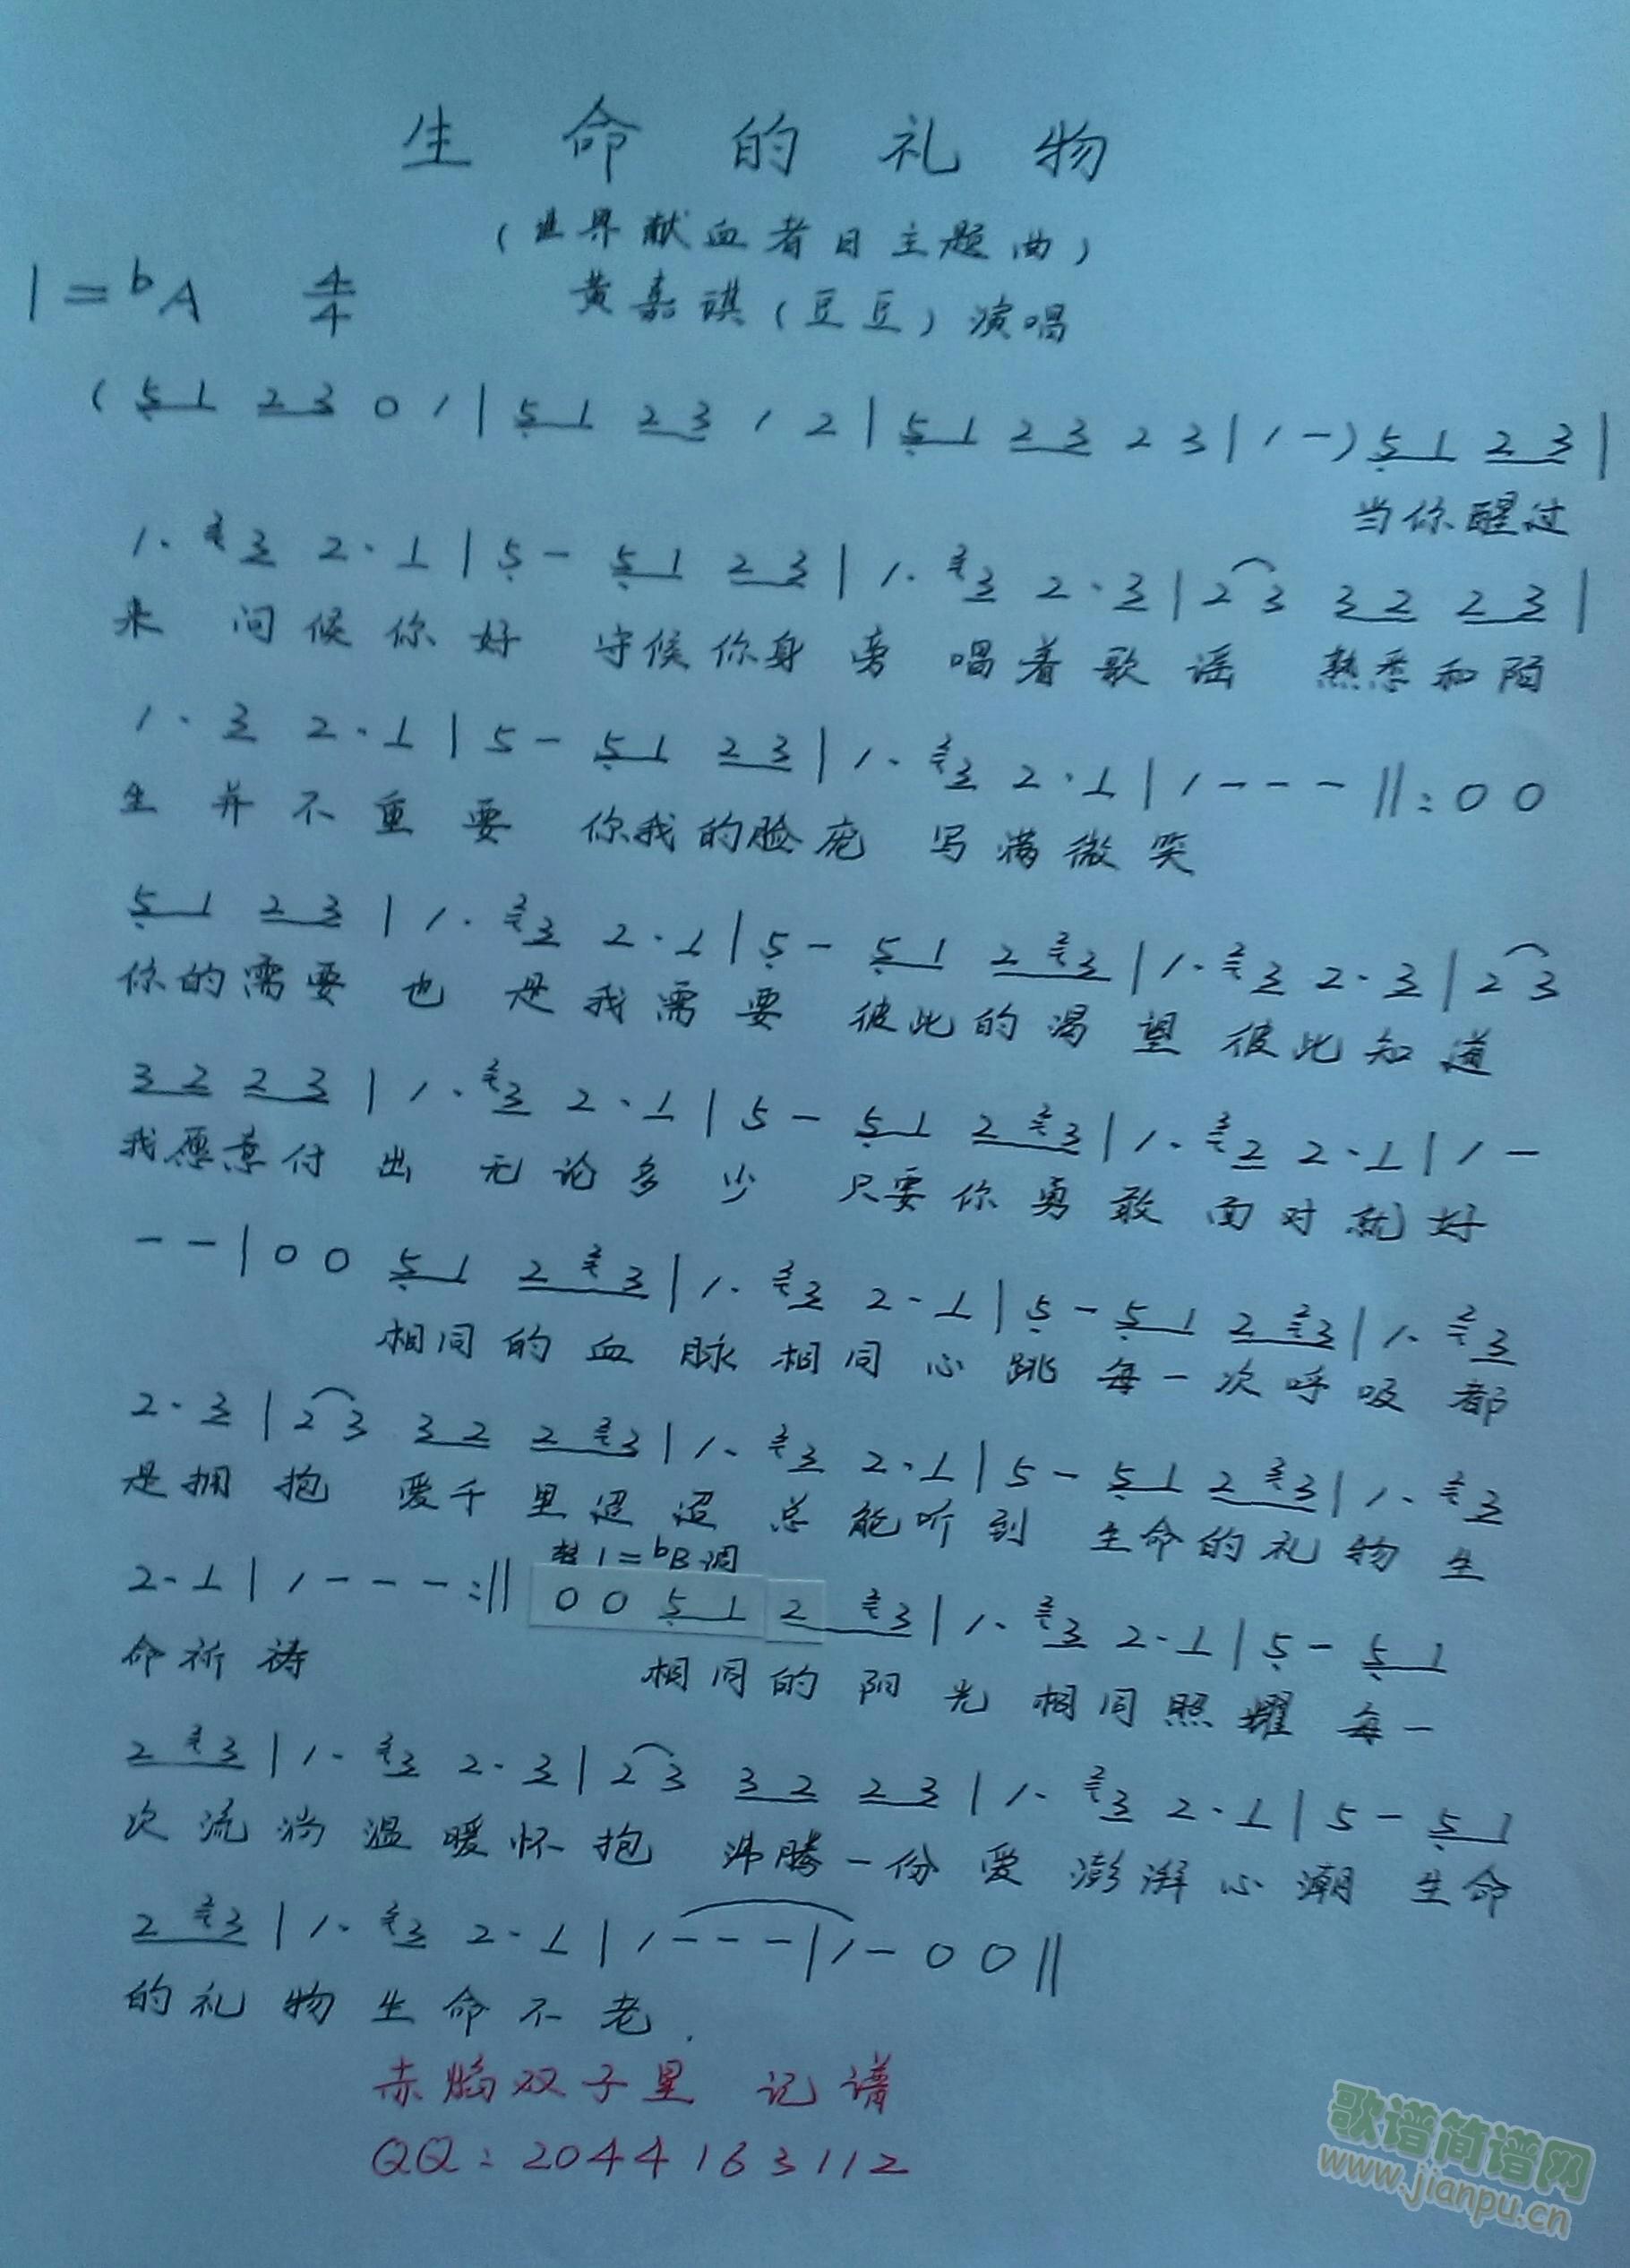 生命的礼物
(世界献血者日主题曲)
1=bA 4/4 黄嘉祺(豆豆)演唱
(51 23 0 1|51 23 1 2|51 23 2 3|1 -)51 23|
当你醒过
1· 3 2·1|5 - 51 23|1· 3 2·3|2 3 32 23|
来 问候你好 守候你身旁 唱着歌谣 熟悉和陌
1· 3 2·1|5 - 51 23|1· 3 2·1|1 - - -‖:0 0
生并不重要 你我的脸庞 写满微笑
51 23|1· 3 2·1|5 - 51 23|1· 3 2·3|2 3
你的需要也是我需要 彼此的渴望彼此知道
32 23|1· 3 2·1|5 - 51 23|1· 2 2·1|1 -
我愿意付出无论多少 只要你勇敢面对就好
- -|0 0 51 23|1· 3 2·1|5 - 51 23|1· 3
相同的血脉相同心跳 每一次呼吸都
2·3|2 3 32 23|1· 3 2·1|5 - 51 23|1· 3
是拥抱 爱千里迢迢总能听到 生命的礼物生
转1=bB调
2·1|1 - - -:‖ 0 0 51 23|1· 3 2·1|5 - 51
命祈祷 相同的阳光相同照耀 每一
23|1· 3 2·3|2 3 32 23|1· 3 2·1|5 - 51
次流淌温暖怀抱 沸腾一份爱澎湃心潮 生命
23|1· 3 2·1|1 - - -|1 - 0 0‖
的礼物生命不老.
赤焰双子星 记谱
QQ:2044163112
歌谱简谱网
www.jianpu.cn